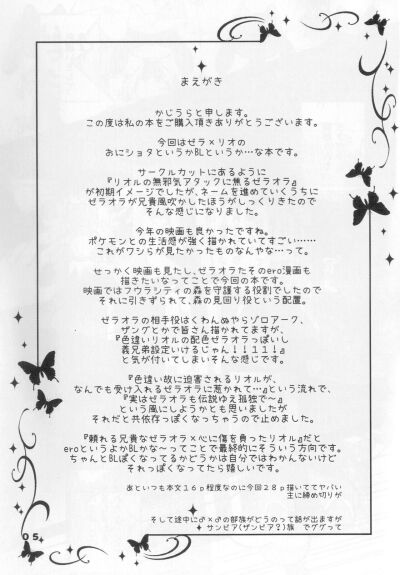 まえがき
かじうらと申します。
この度は私の本をご購入頂きありがとうございます。
今回はゼラ×リオの
おにショタというかBLというか…な本です。
サークルカットにあるように
『リオルの無邪気アタックに焦るゼラオラ』
が初期イメージでしたが、ネームを進めていくうちに
ゼラオラが兄貴風吹かしたほうがしっくりきたので
そんな感じになりました。
今年の映画も良かったですね。
ポケモンとの生活感が強く描かれていてすごい……
これがワシらが見たかったものなんやな…って。
せっかく映画も見たし、ゼラオラたそのero漫画も
描きたいなってことで今回の本です。
映画ではフウラシティの森を守護する役割でしたので
それに引きずられて、森の見回り役という配置。
ゼラオラの相手役はくわんぬやらゾロアーク、
ザングとかで皆さん描かれてますが、
『色違いリオルの配色ゼラオラっぽいし
義兄弟設定いけるじゃん!!1!1!』
と気が付いてしまいそんな感じです。
『色違い故に迫害されるリオルが、
なんでも受け入れるゼラオラに惹かれて…』という流れで、
『実はゼラオラも伝説ゆえ孤独で～』
という風にしようかとも思いましたが
それだと共依存っぽくなっちゃうので止めました。
『頼れる兄貴なゼラオラ×心に傷を負ったリオル』だと
eroいというよかBLかな～ってことで最終的にそういう方向です。
ちゃんとBLぽくなってるかどうかは自分ではわかんないけど
それっぽくなってたら嬉しいです。
あといつも本文16p程度なのに今回28p描いててヤバい
主に締め切りが
そして途中に♂×♂の部族がどうのって話が出ますが
サンビア(ザンビア?)族 でググって
05